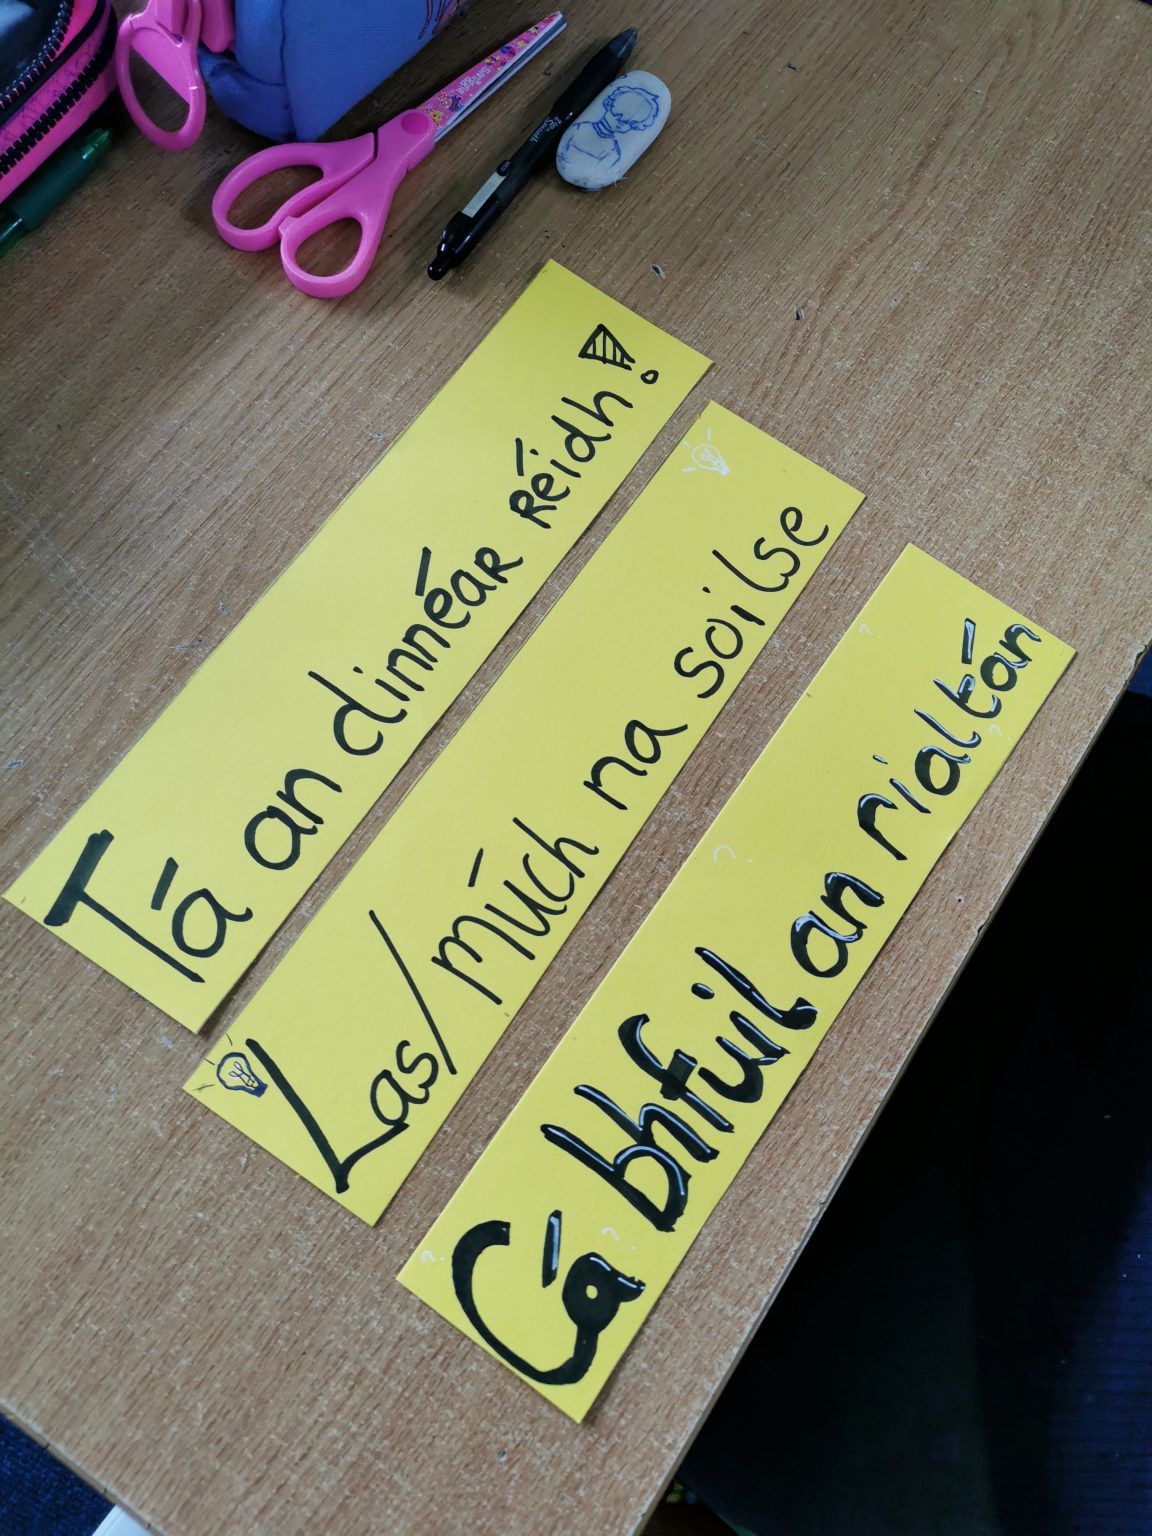 Tá an dinnéar réidh!
Las/múch na soilse
Cá bhfuil an rialtán
Smiggle